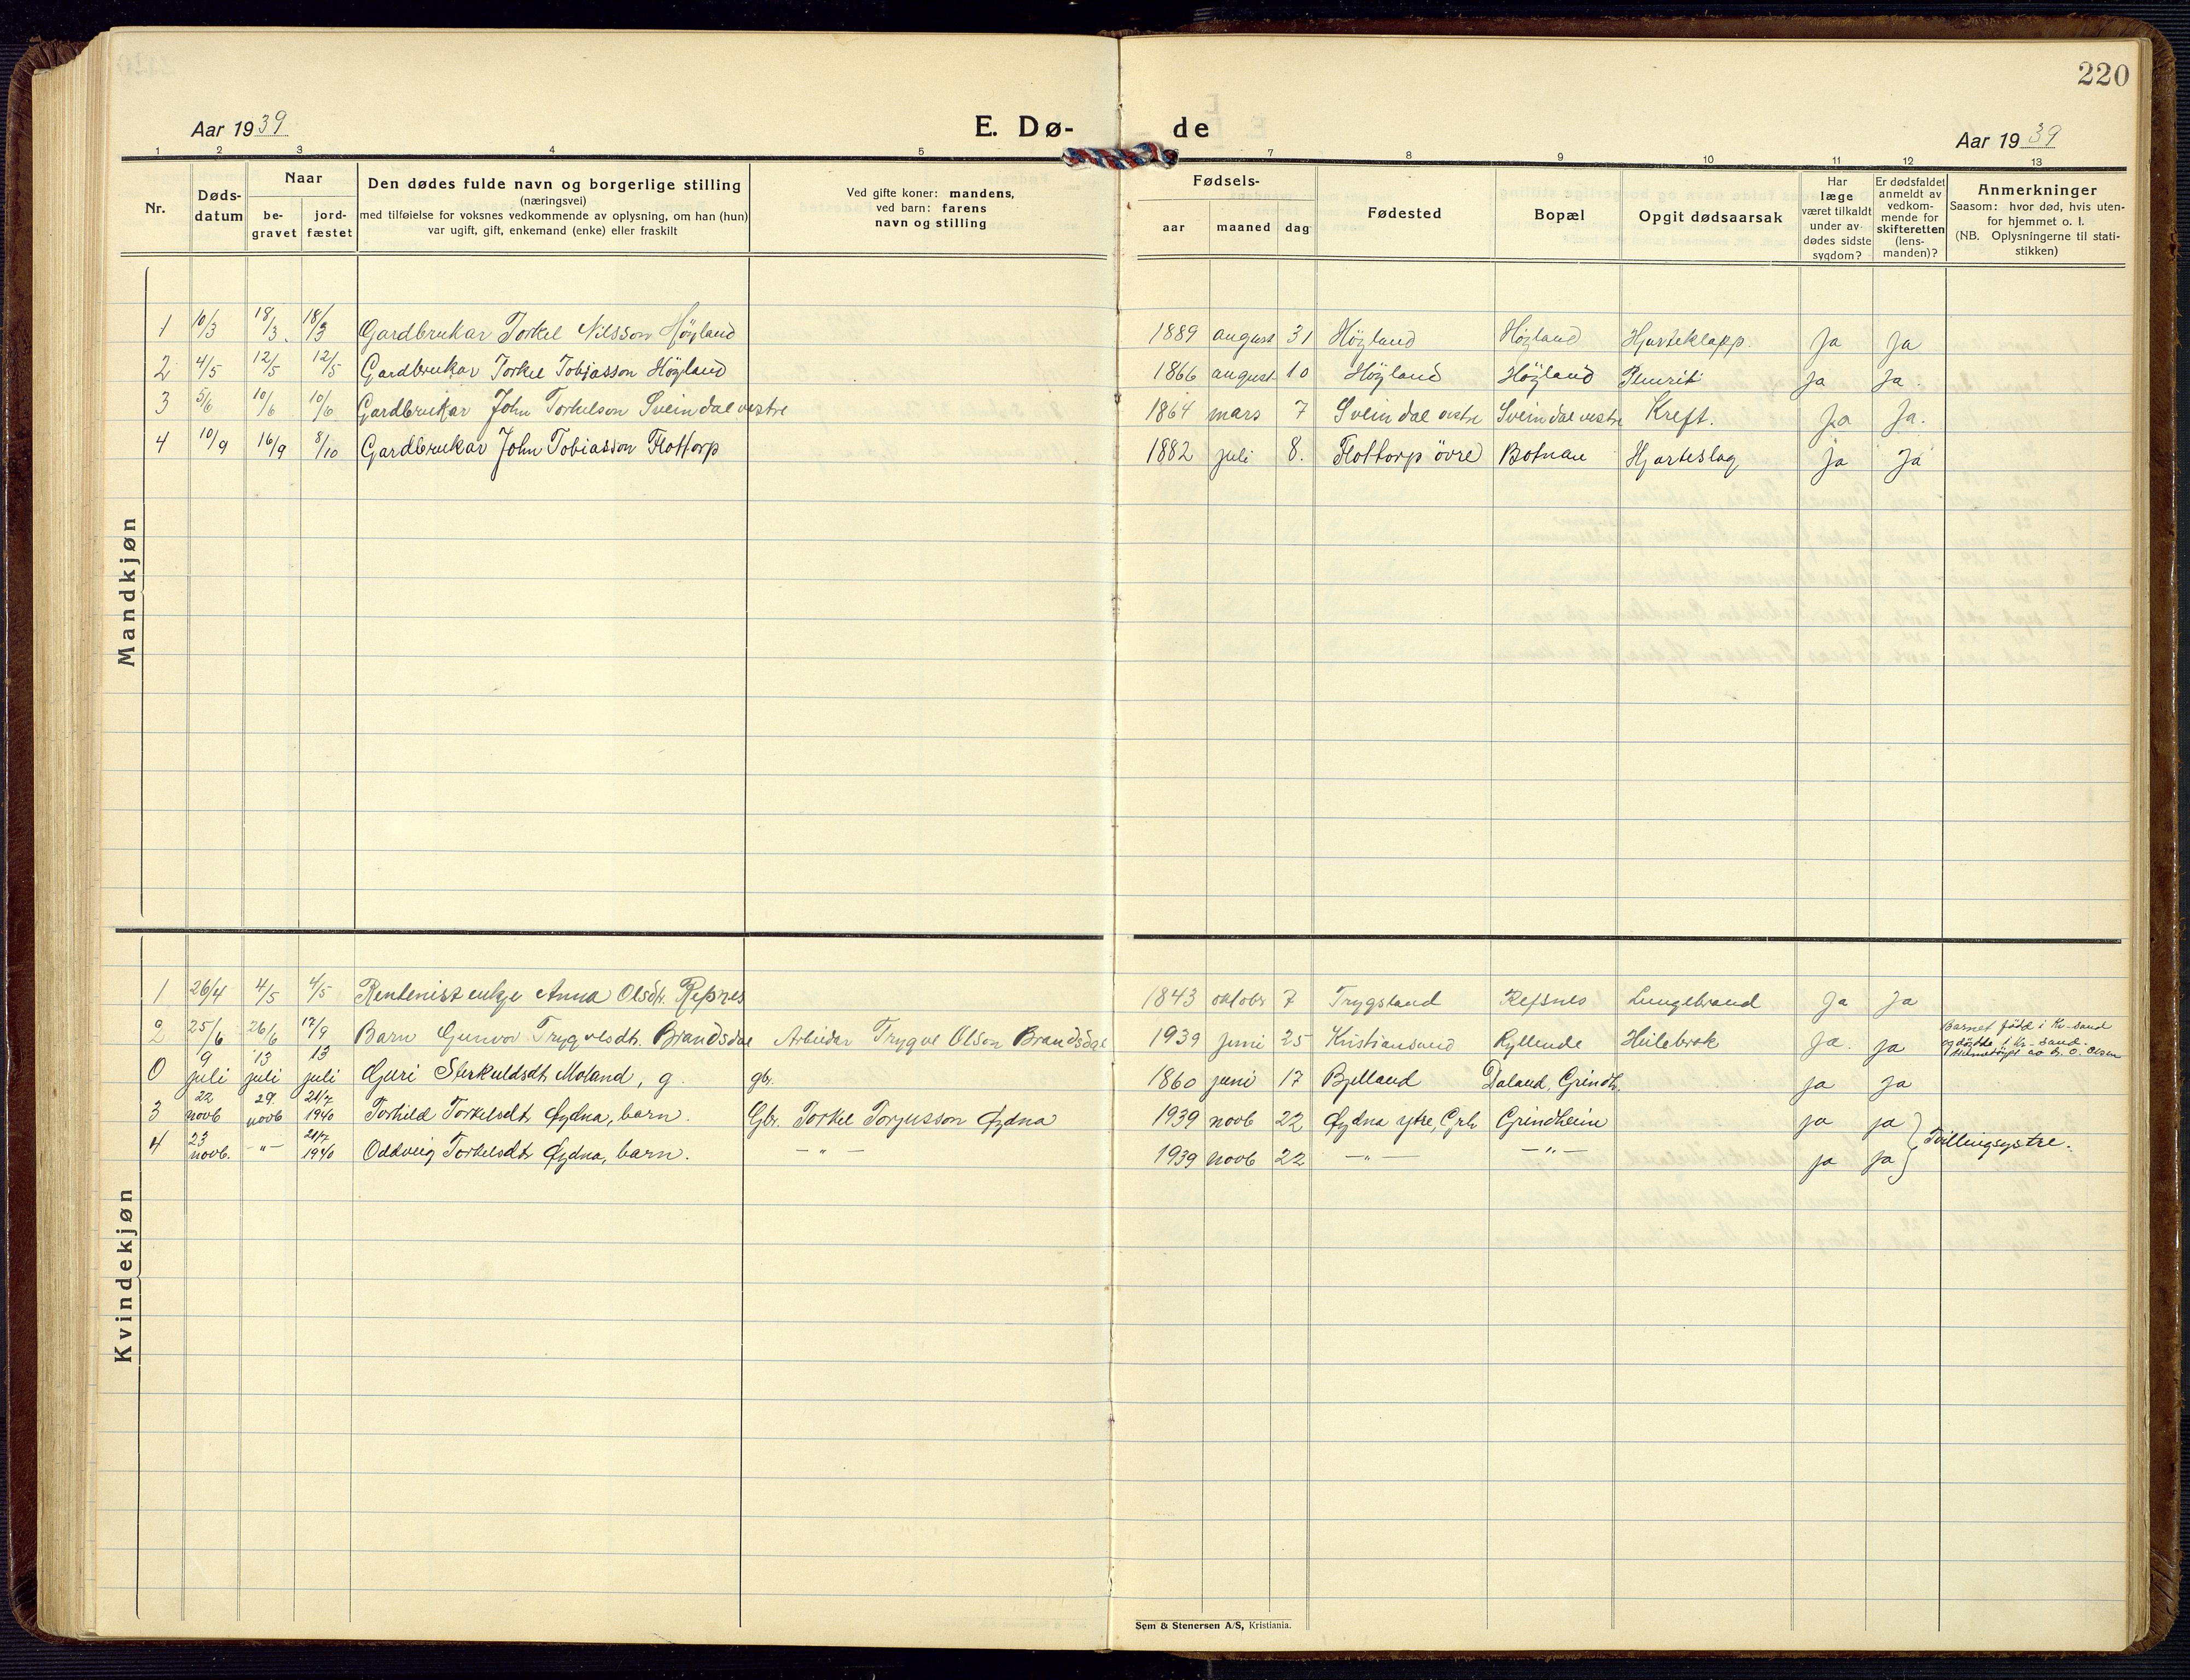 220
Aar 1939 E. Dø- de Aar 1939
1 2 3 4 5 7 8 9 10 11 12 13
Nr.
Døds-
datum
Naar
be-
gravet
jord-
fæstet
Den dødes fulde navn og borgerlige stilling
(næringsvei)
med tilføielse for voksnes vedkommende av oplysning, om han (hun)
var ugift, gift, enkemand (enke) eller fraskilt
Ved gifte koner: mandens,
ved barn: farens
navn og stilling
Fødsels-
aar maaned dag
Fødested
Bopæl
Opgit dødsaarsak
Har
læge
været tilkaldt
under av-
dødes sidste
sygdom?
Er dødsfaldet
anmeldt av
vedkom-
mende for
skifteretten
(lens-
manden)?
Anmerkninger
Saasom: hvor død, hvis uten-
for hjemmet o. l.
(NB. Oplysningerne til stati-
stikken)
Mandkjøn
1 10/3 18/3. 18/3 Gardbrukar Torkel Nilsson Höyland 1889 august 31 Höyland Höyland Hjarteklapp. Ja Ja
2 4/5 12/5 12/5 Gardbrukar Torkel Tobiasson Höyland 1866 august 10 Höyland Höyland Pleurit Ja Ja.
3 5/6 10/6 10/6 Gardbrukar John Torkelson Sveindal vestre 1864 mars 7 Sveindal vestre Sveindal vestre Kreft. Ja Ja.
4 10/9 16/9 8/10 Gardbrukar John Tobiasson Flottorp 1882 juli 8. Flottorp övre Botnan Hjarteslag Ja Ja
Kvindekjøn
1 26/4 4/5 4/5 Rentenist enkje Anna Olsdtr. Refsnes 1843 oktobr 7 Trygstand Refsnes Lungebrand Ja Ja
2 25/6 26/6 17/9 Barn Gunvor Trygvesdt. Brandsdal Arbeidar Trygve Olson Brandsdal 1939 juni 25 Kristiansand Kyllende Heilebrok Ja. Ja Barnet född i Kr-sand
og dödde i Kr-sand.
Heimedöypt av O. Olsen
0 9 juli 13 juli 13 juli Guri Sterkuldsdt. Moland, g. gb. 1860 juni 17 Bjelland Daland, Grindh. ja Ja
3 22 novb 29. novb 21/7 1940 Torhild Torkelsdt. Øydna, barn. Gbr. Torkel Torjusson Øydna 1939 novb 22 Øydna ytre, Grh Grindheim ja ja } Tvillingsystre.
4 23 novb. -"- 21/7 1940 Oddveig Torkelsdt. Øydna, barn. -"- 1939 novb 22 -"- -"- ja ja
Sem & Stenersen A/S, Kristiania.